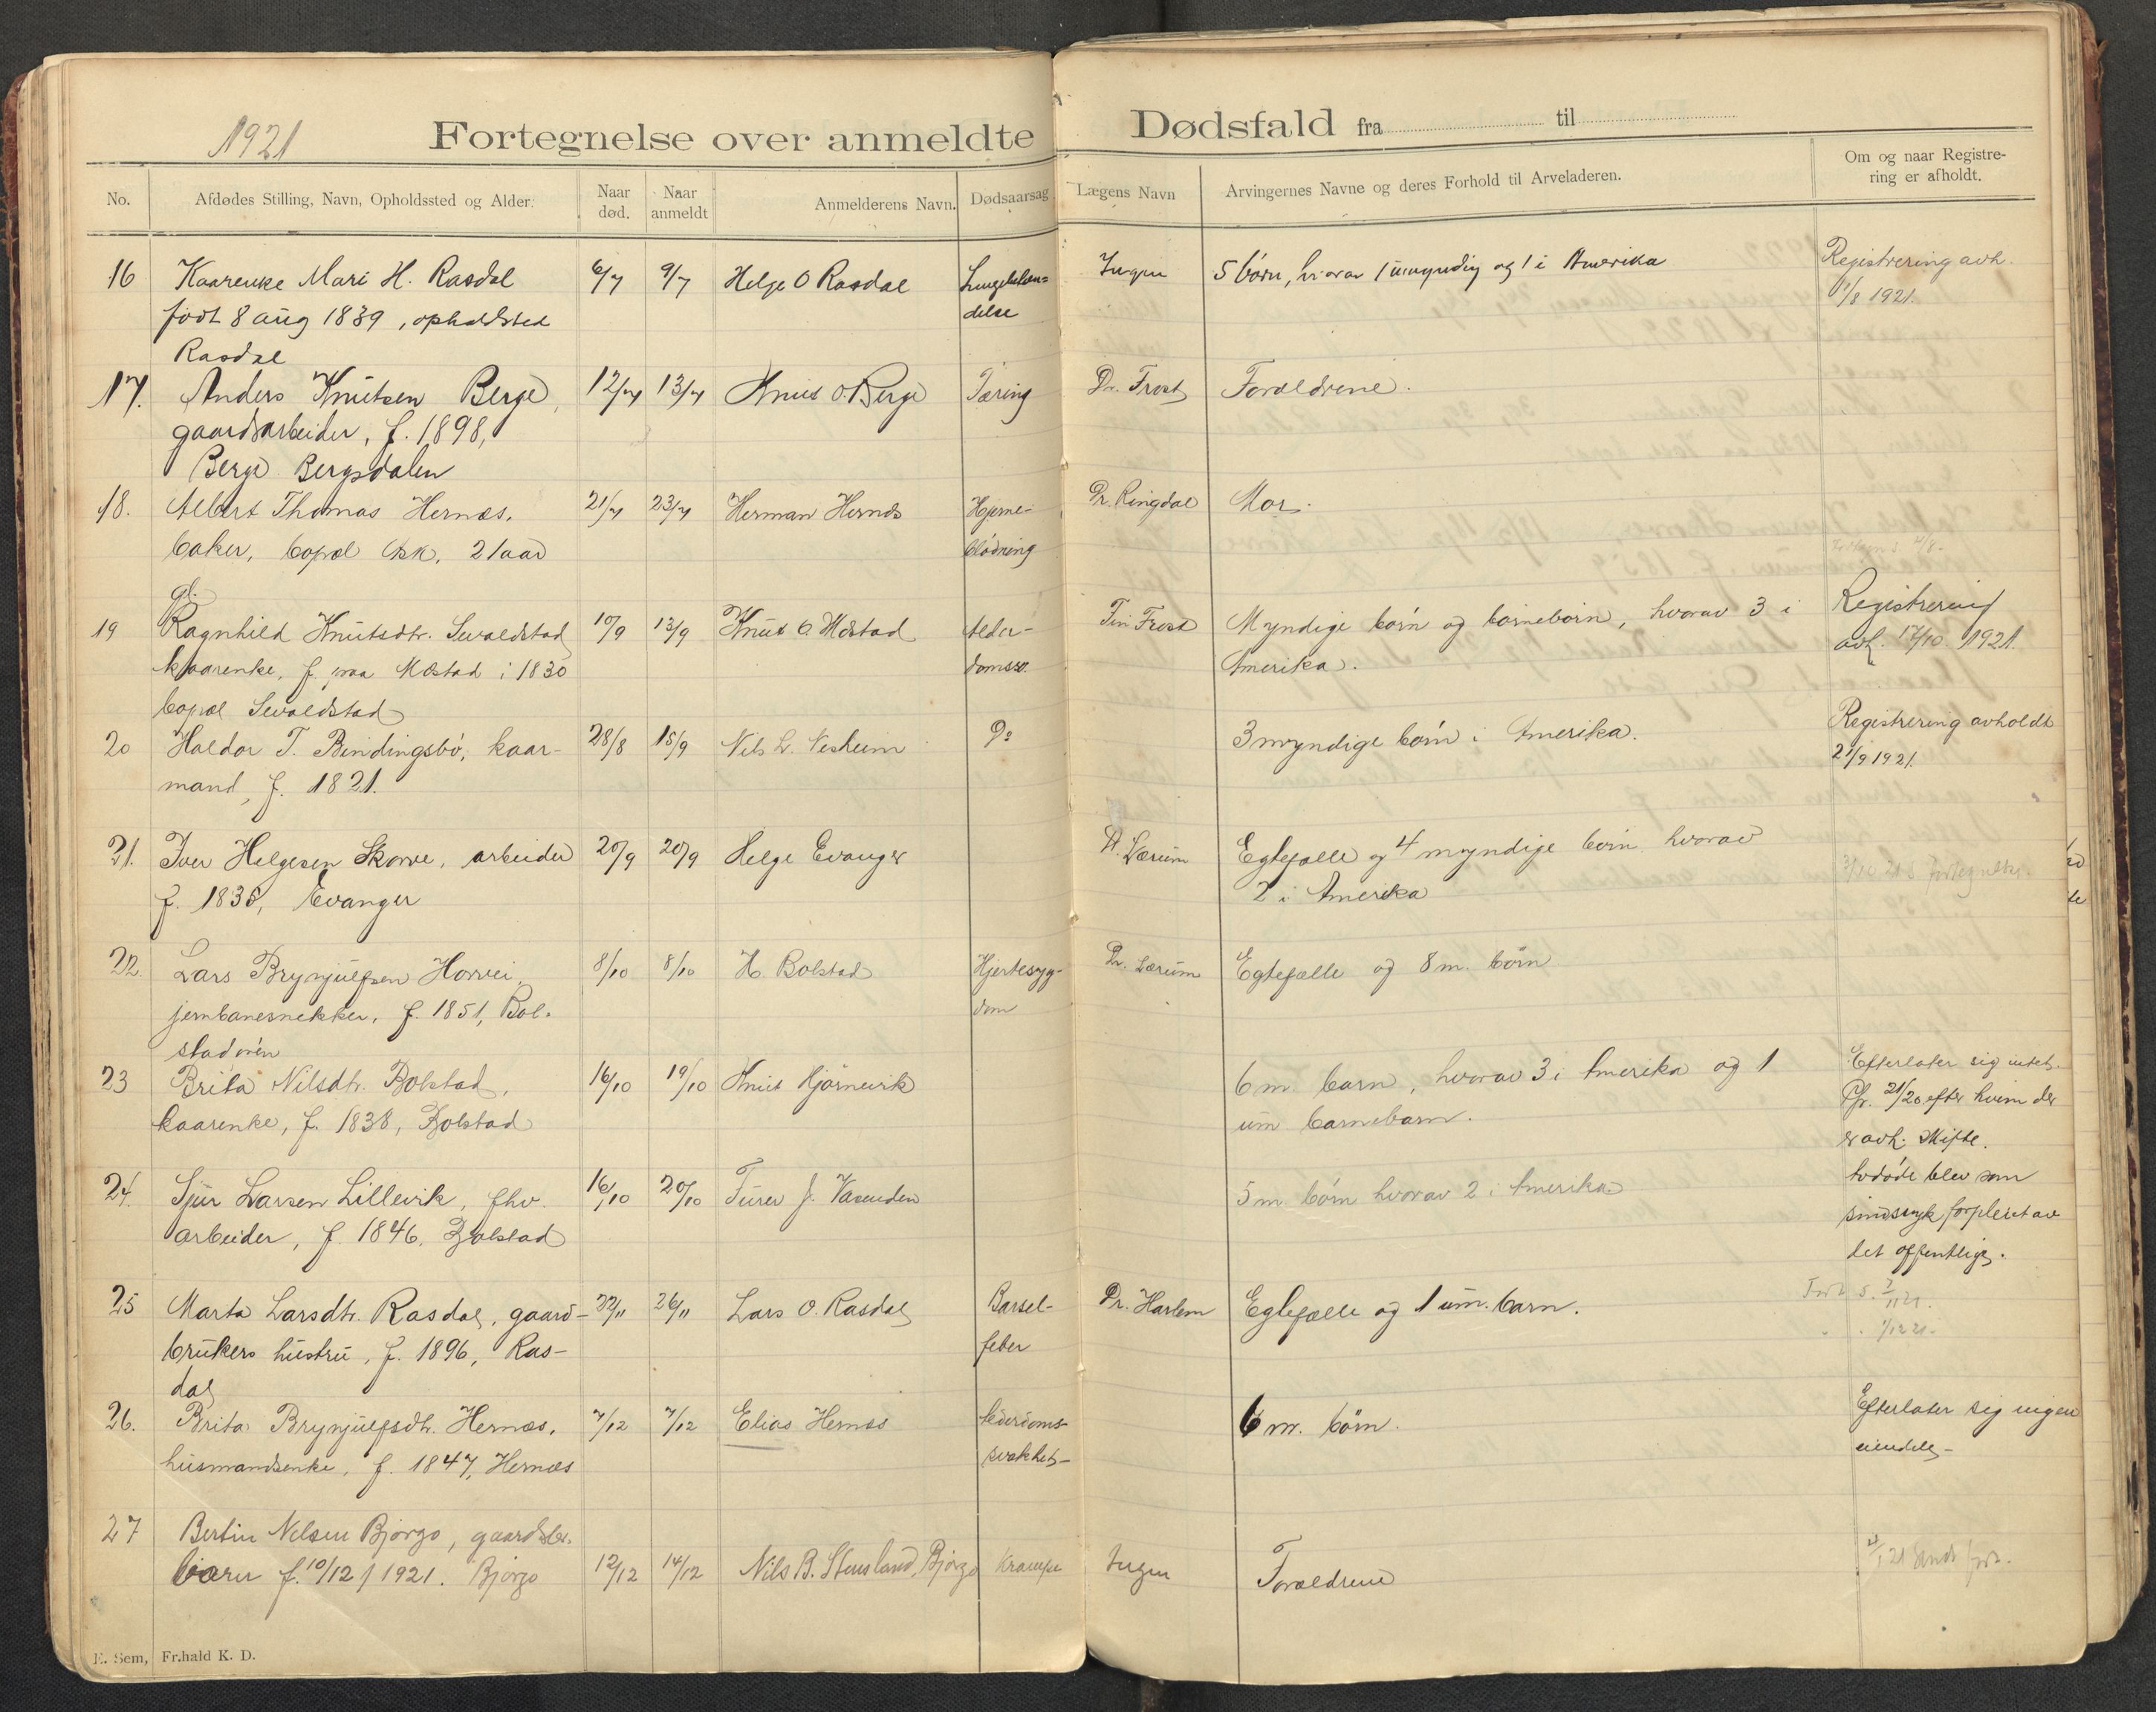 1921
Fortegnelse over anmeldte Dødsfald fra til
No. Afdødes Stilling, Navn, Opholdssted og Alder. Naar død. Naar anmeldt Anmelderens Navn. Dødsaarsag Lægens Navn Arvingernes Navne og deres Forhold til Arveladeren. Om og naar Registrering er afholdt.
16 Kaarenke Mari H. Rasdal 6/7 9/7 Helge O Rasdal Lungebetæn= Ingen 5 børn, hvorav 1 umyndig og 1 i Amerika Registrering avh.
født 8 aug 1839, opholdsted delse 1/8 1921.
Rasdal
17. Anders Knutsen Berge, 12/7 13/7 Knut O. Berge Tæring Dr. Frost Forældrene.
gaardsarbeider, f. 1898,
Berge Bergsdalen
18. Albert Thomas Hernæs, 21/7 23/7 Herman Hernæs Hjerne- Dr. Ringdal Mor.
baker, bopæl Ask, 21 aar blødning
gl.
19 Ragnhild Knutsdtr. Sevaldstad 10/9 13/9 Knut O. Mestad Alder- Frost Myndige børn og barnebørn, hvorav 3 i Registrering
kaarenke, f. paa Mestad i 1830 domssv. Amerika. avh. 17/10 1921.
bopæl Sevaldstad
20 Haldor T. Bindingsbø, kaar- 28/8 15/9 Nils L. Do 3 myndige børn i Amerika. Registrering avholdt
mand, f. 1821. 21/9 1921.
21. Iver Helgesen Skorve, arbeider 20/9 20/9 Helge Evanger Dr. Lærum Egtefælle og 4 myndige børn hvorav
f. 1835, Evanger 2 i Amerika
22. Lars Brynjulfsen Horvei, 8/10 8/10 H. Bolstad Hjertesyg- Dr. Lærum Egtefælle og 8 m. børn
jernbanesnekker, f. 1851, Bol-
dom
stadøren
23 Brita Nilsdtr. Bolstad, 16/10 19/10 Knut Hjørnevik 6 m. barn, hvorav 3 i Amerika og 1 Efterlater sig intet.
kaarenke, f. 1838, Bolstad um barnebarn. 21/20 efter hvem der
er avh. skifte.
24. Sjur Larsen Lillevik, fhv. 16/10 20/10 J. Vasenden 5 m. børn hvorav 2 i Amerika avdøde blev som
arbeider, f. 1846, Bolstad sindssyk forpleiet av
det offentlige.
25 Marta Larsdtr. Rasdal, gaard- 22/11 26/11 Lars O. Rasdal Barsel- Dr. Harlem Egtefælle og 1 um. barn.
brukers hustru, f. 1896, Ras- feber
dal
26. Brita Brynjulfsdtr. Hernæs, 7/12 7/12 Elias Hernæs Alderdoms- 6 m. børn. Efterlater sig ingen
husmandsenke, f. 1847, Hernæs svakhet- eiendele-
27 Bertin Nilsen Bjørgo, gaardbr.
barn f. 10/12 1921. Bjørgo 12/12 14/12 Nils B. Stensland, Bjørgo Krampe Ingen Forældrene
E. Sem, Fr.hald K. D.